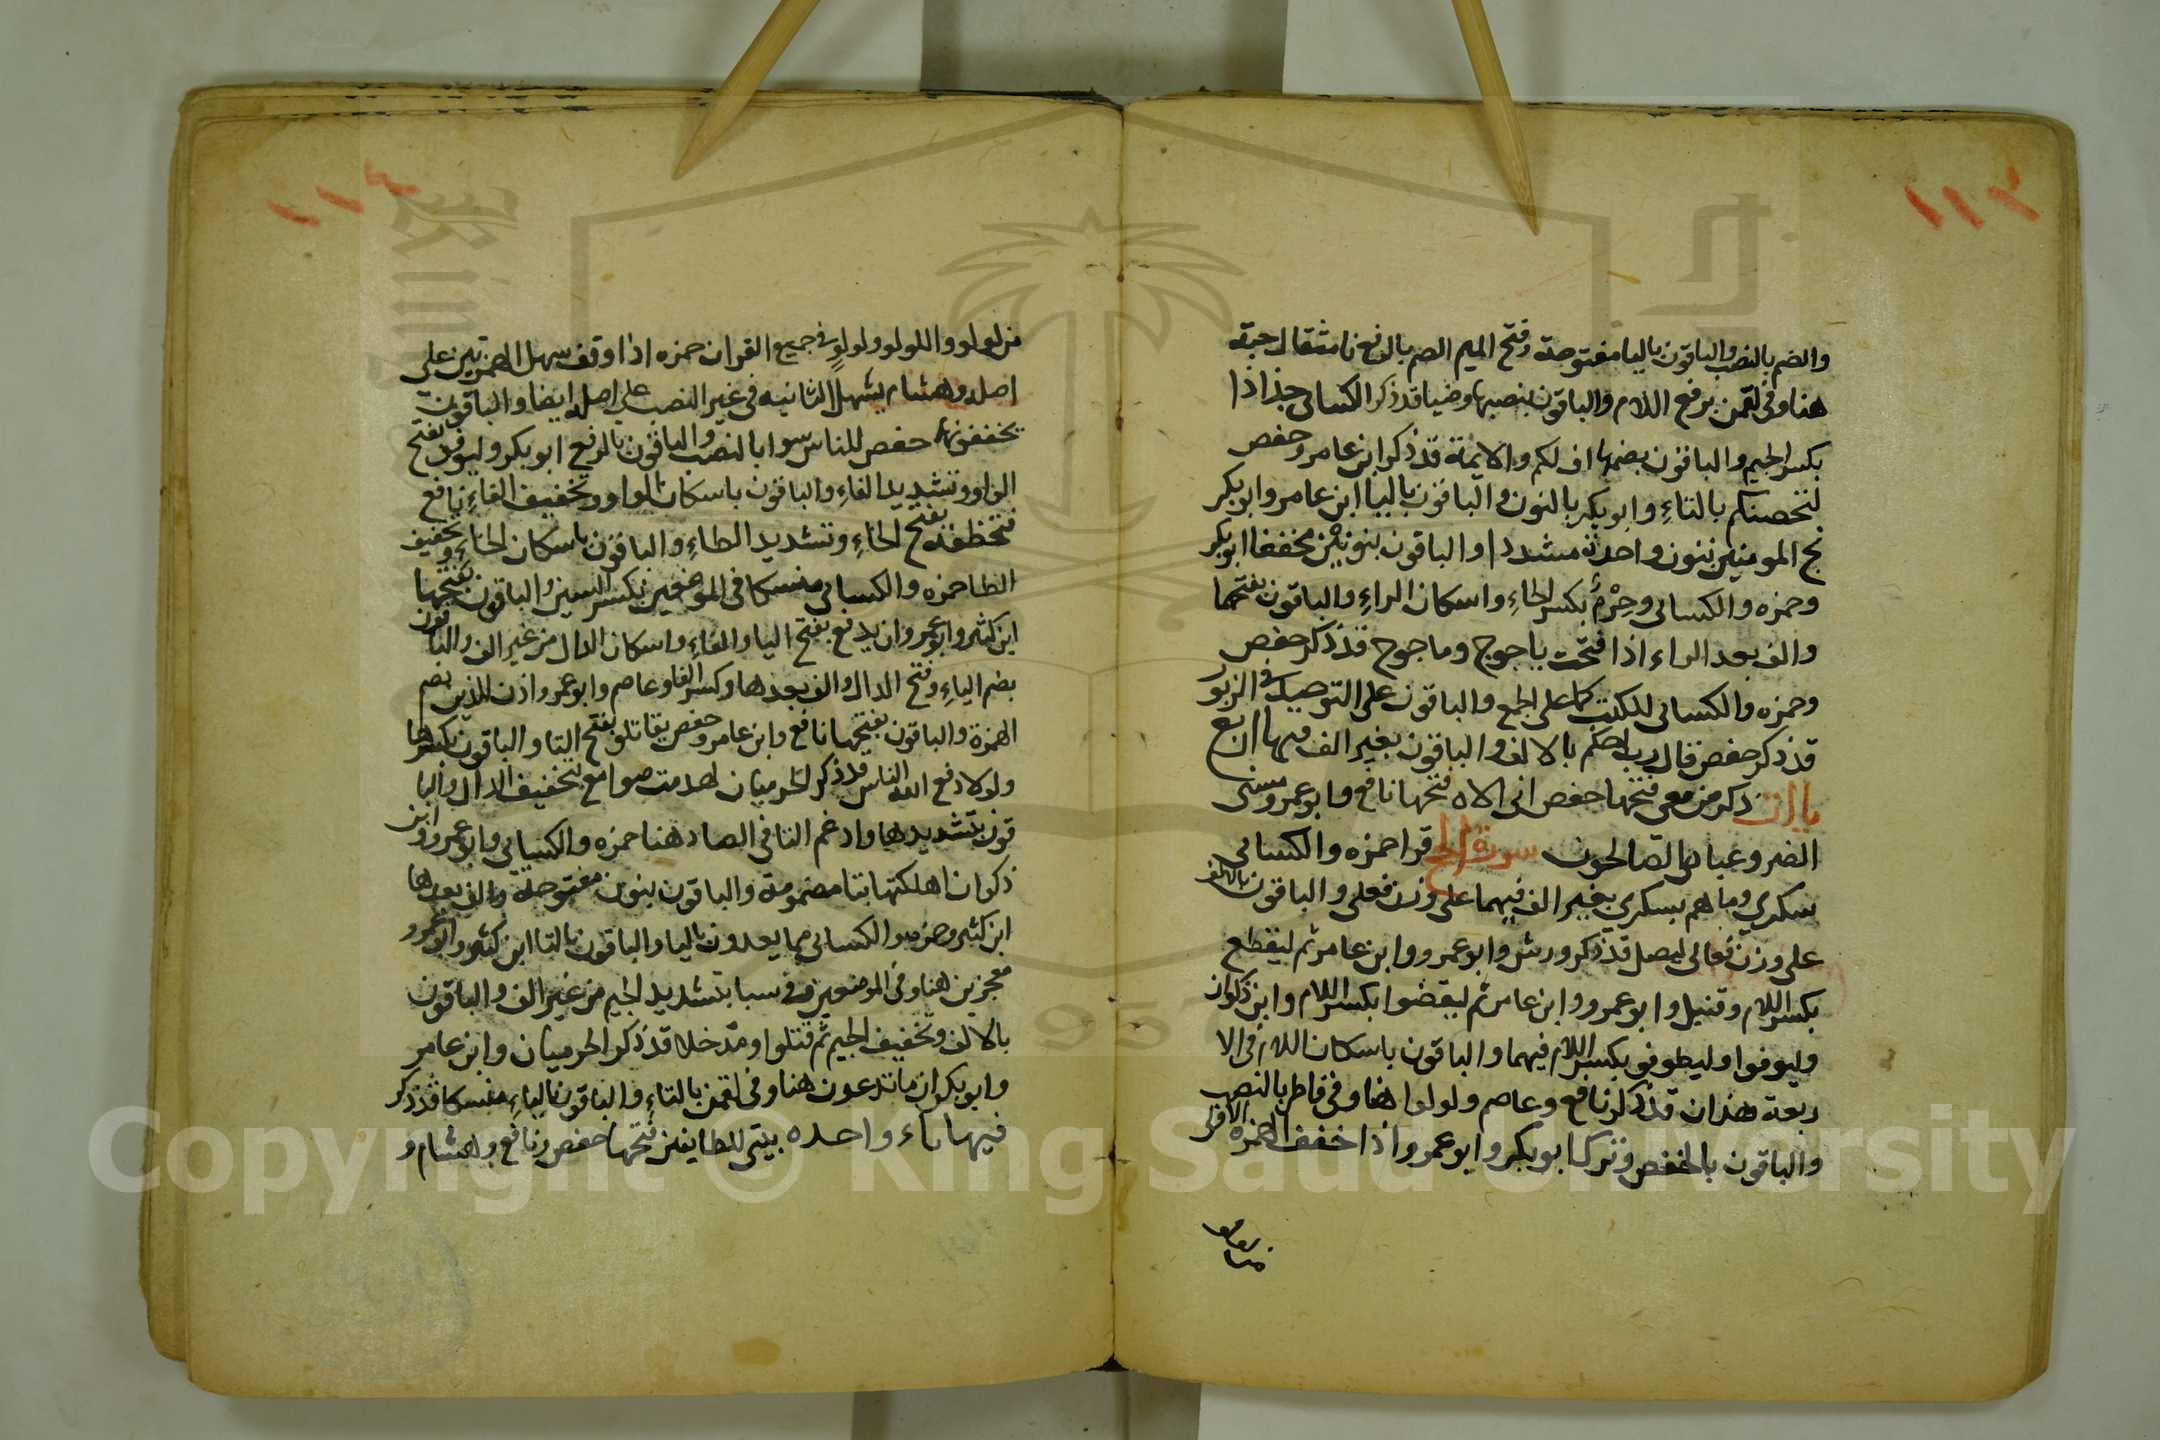 ١١٣
والضم بالنصب والباقون باليا مفتوحة وفتح الميم الصم بالرفع نا مثقال حبة
هنا وفي لقمن برفع اللام والباقون بنصبها وضيا قد ذكر الكسائي جذاذا
بكسر الجيم والباقون بضمها اف لكم والايمة قد ذكر ابن عامر وحفص
لتحصنكم بالتاءِ وابو بكر بالنون والباقون باليا ابن عامر وابو بكر
نج المومنين بنون واحدة مشددا والباقون بنونين مخففا ابو بكر
وحمزه والكسائي وحِرْمُ بكسر الحاءِ واسكان الراءِ والباقون بفتحهما
والف بعد الراء اذا فتحت ياجوج وماجوج قد ذكر حفص
وحمزه والكسائي للكتب على الجمع والباقون على التوحيد في الزبور
قد ذكر حفص قال رب احكم بالالف والباقون بغير الف فيها اربع
ياات ذكر من معي فتحها حفص اني الاه فتحها نافع وابو عمرو مسني
الضر وعبادي الصالحون سورة الحج قرا حمزه والكسائي
سكري وما هم بسكري بغير الف فيهما على وزن فعلى والباقون بالالف
على وزن فعالى ليضل قد ذكر ورش وابو عمرو وابن عامر ثم ليقطع
بكسر اللام وقنبل وابو عمرو وابن عامر ثم ليقضوا بكسر اللام وابن ذكوان
وليوفوا وليطوفو بكسر اللام فيهما والباقون باسكان اللام في الا
ربعة هذان قد ذكر نافع وعاصم ولولوا هنا وفي فاطر بالنصب
والباقون بالخفض وترك ابو بكر وابو عمرو اذا خفف الهمزه الاولى
١١٤
من لولو واللولو ولولوٍ في جميع القران حمزه اذا وقف سهل الهمزتين على
اصله وهشام يسهل الثانيه في غير النصب على اصله ايضا والباقون
يحققونها حفص للناس سوا بالنصب والباقون بالرفع ابو بكر وليوفو بفتح
الواو وتشديد الفاءِ والباقون باسكان الواو وتخفيف الفاءِ نافع
فتخطفه بفتح الخاءِ وتشديد الطاءِ والباقون باسكان الخاءِ وتخفيف
الطا حمزه والكسائي منسكا في الموضعين بكسر السين والباقون بفتحها
ابن كثير وابو عمرو ان يدفع بفتح اليا والفاءِ واسكان الدال من غير الف والباقون
بضم الياءِ وفتح الدال والف بعدها وكسر الفا وعاصم وابو عمرو اذن للذين بضم
الهمزة والباقون بفتحها نافع وابن عامر وحفص يقاتلو بفتح التا والباقون بكسرها
ولولا دفع الله الناس قد ذكر الحرميان لهدمت صوامع بتخفيف الدال والبا
قون بتشديدها وادغم التا في الصاد هنا حمزه والكسائي وابو عمرو وابن
ذكوان اهلكتها بتا مضمومة والباقون بنون مفتوحة والف بعدها
ابن كثير وحمزه والكسائي مما يعدون باليا والباقون بالتا ابن كثير وابو عمرو
معجزين هنا وفي الموضعين في سبا بتشديد الجيم من غير الف والباقون
بالالف وتخفيف الجيم ثم قتلوا ومدخلا قد ذكر الحرميان وابن عامر
وابو بكر ان ما تدعون هنا وفي لقمن بالتاءِ والباقون بالياءِ منسكا قد ذكر
فيها ياء واحده بيتي للطايفين فتحها حفص ونافع وهشام و